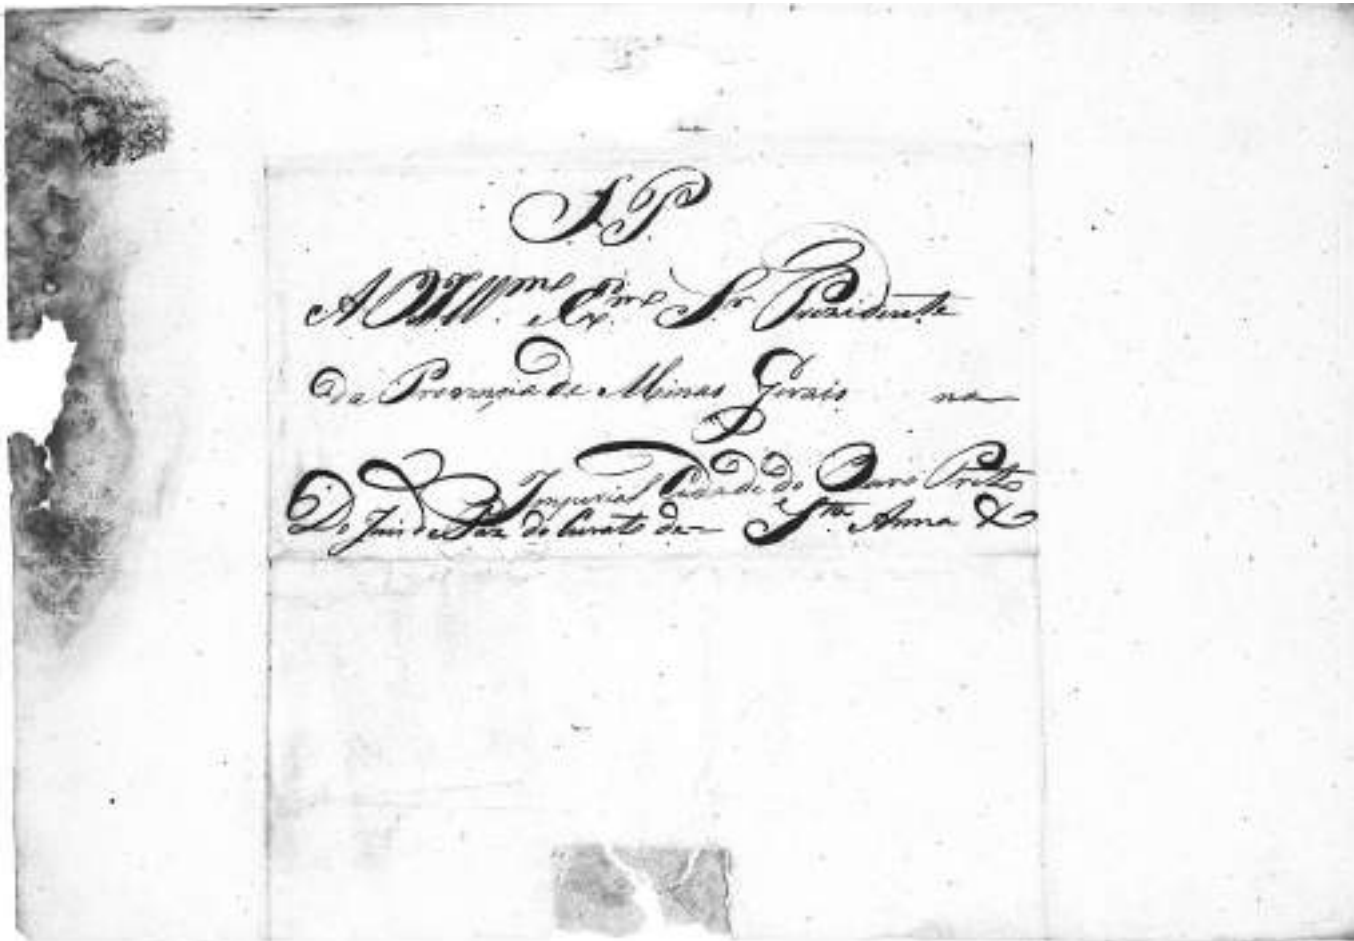 S. P.
A O Ill.mo Ex.mo S.r Prezidente
da Provinçia de Minas Gerais na
Imperial Cidade do Ouro Preto
Do Juis de Paz do Curato de S.ta Anna &